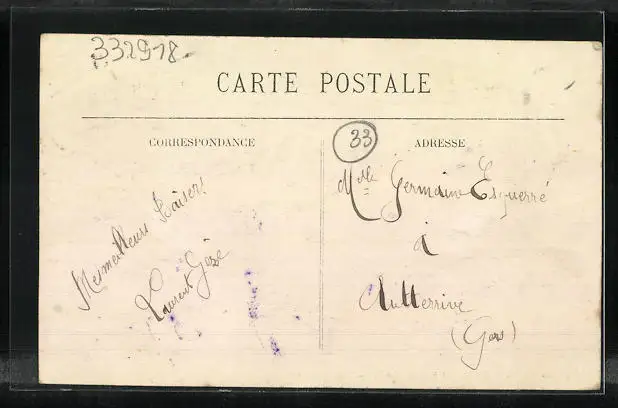 332918
CARTE POSTALE
CORRESPONDANCE
Mes meilleurs baisers
Laurent Gèze
33
ADRESSE
Mdlle Germaine Esquerré
à
Aulterrive
(Gers)